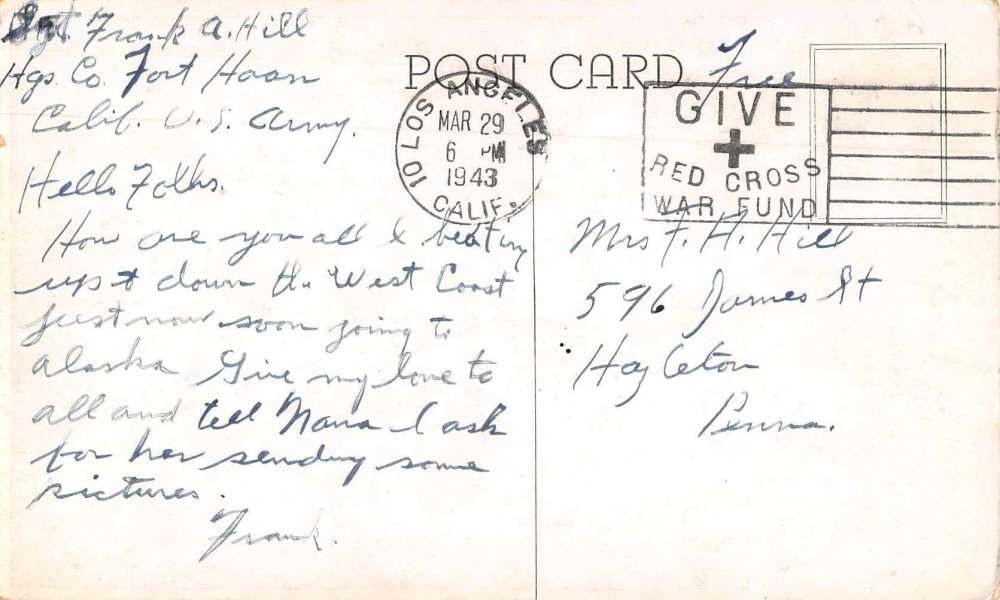 Sgt. Frank A. Hill
Hqs. Co. Fort Haan
Calif. U. S. Army.
Hello Folks.
How are you all I beating
up & down the West Coast
just now soon going to
Alaska Give my love to
all and tell Nana I ask
for her sending some
pictures.
Frank.
POST CARD
Free
LOS ANGELES
10
MAR 29
6 PM
1943
CALIF.
GIVE
RED CROSS
WAR FUND
Mrs F. H. Hill
596 James St
Hazleton
Penna.